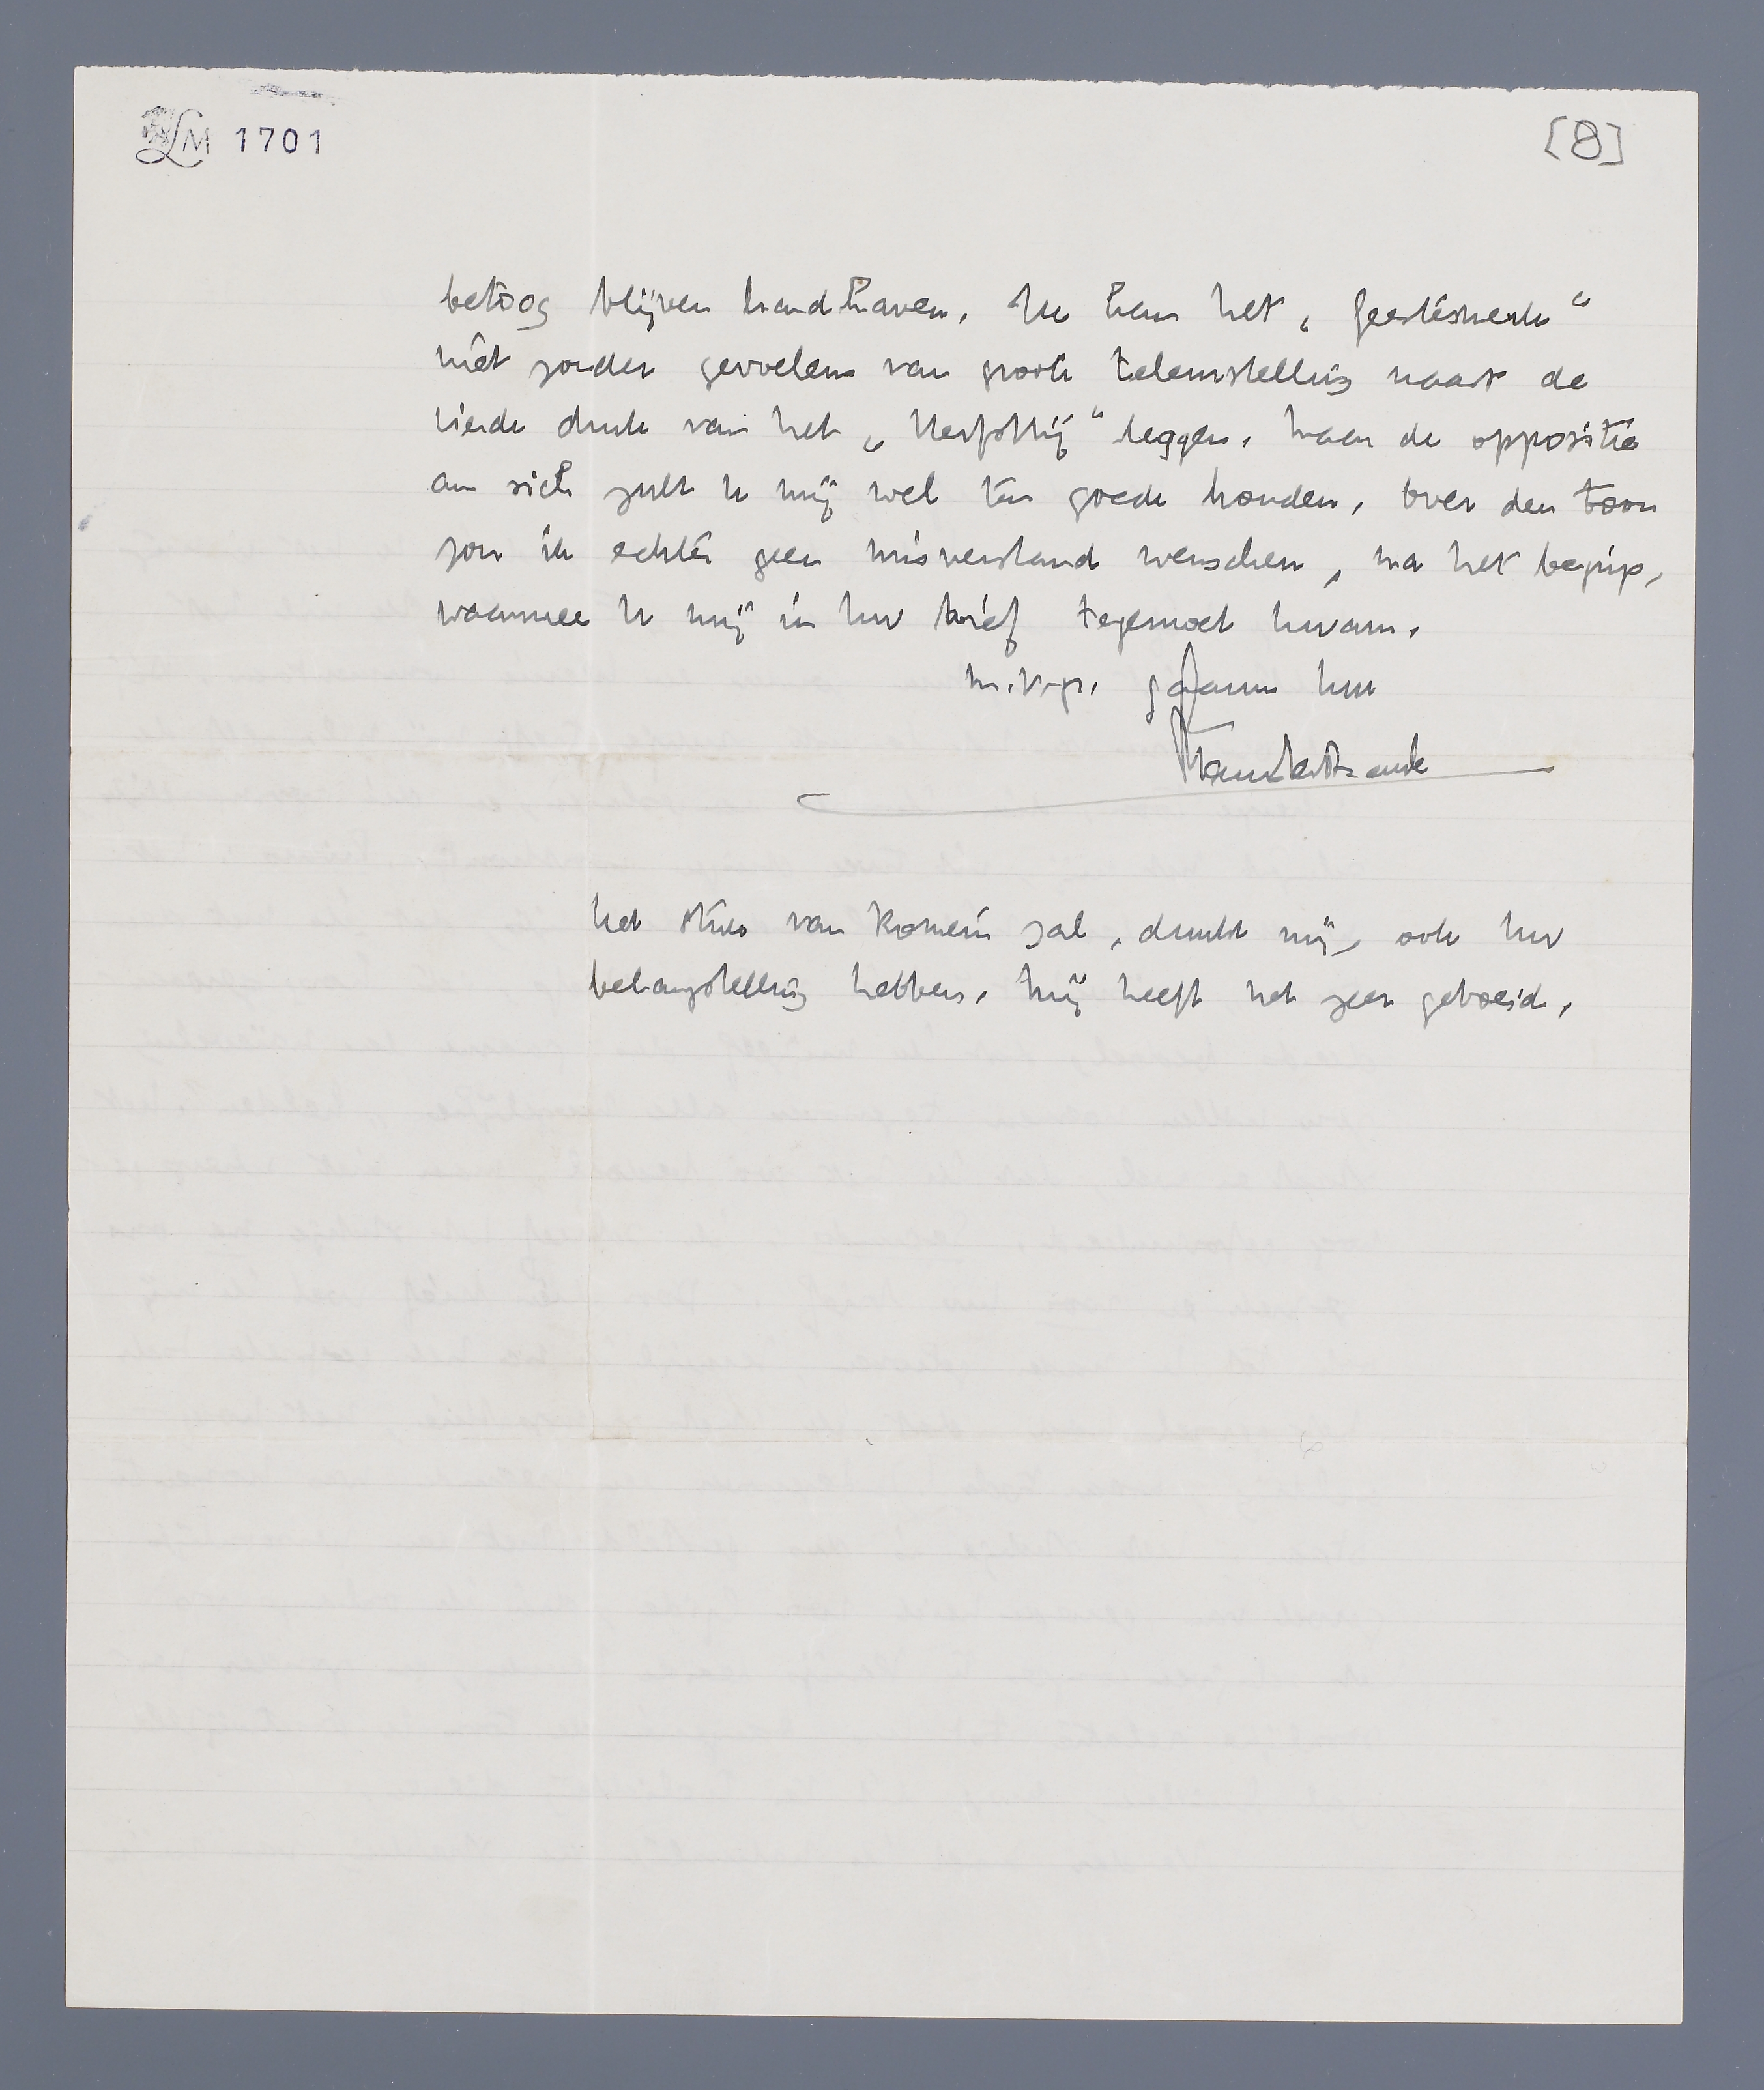 LM 1701
[8]
betoog blijven handhaven. Ik kan het „geesteswerk“
niet zonder gevoelens van groote teleurstelling naast de
vierde druk van het „Herfsttij“ leggen. Maar de oppositie
an sich zult U mij wel ten goede houden, over den toon
zou ik echter geen misverstand wenschen, na het begrip,
waarmee U mij in Uw brief tegemoet kwam.
m. v. gr. gaarne Uw
Menno ter Braak
Het stuk van Romein zal, dunkt mij, ook Uw
belangstelling hebben. Mij heeft het zeer geboeid.